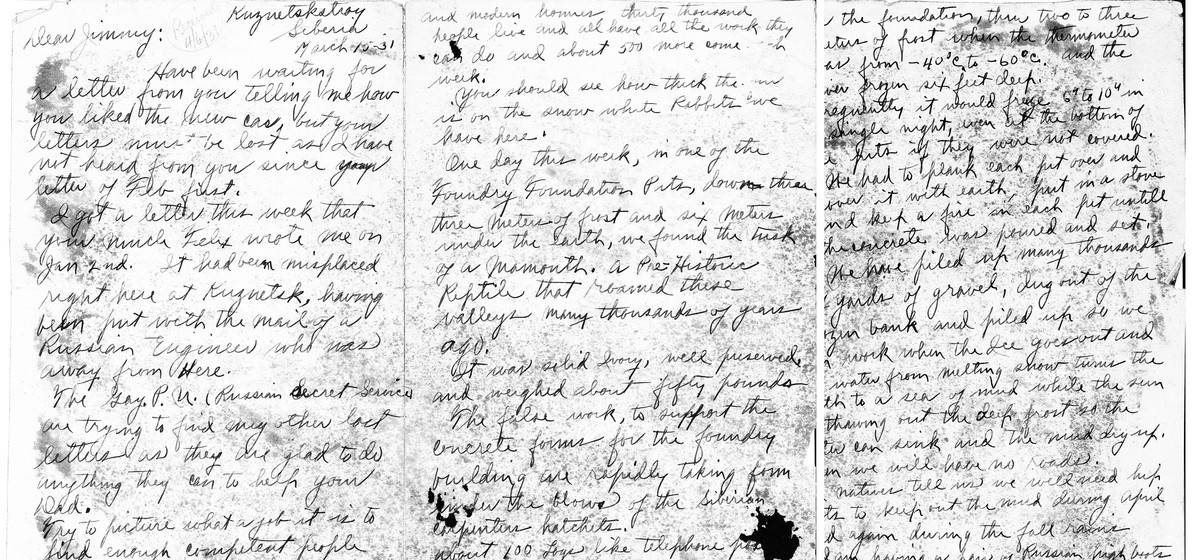 Kuznetskstroy
Siberia
March 15-31
Dear Jimmy:
Have been waiting for
a letter from you telling me how
you liked the new car, but your
letters must be lost as I have
not heard from you since your
letter of Feb first.
I got a letter this week that
your uncle Felix wrote me on
Jan 2nd. It had been misplaced
right here at Kuznetsk, having
been put with the mail of a
Russian Engineer who was
away from here.
The Gay. P. U. (Russian Secret Service
are trying to find my other lost
letters as they are glad to do
anything they can to help your
Dad.
Try to picture what a job it is to
find enough competent people
and modern homes thirty thousand
people live and all have all the work they
can do and about 500 more come
week.
You should see how thick the
is on the snow white Rabbits we
have here.
One day this week, in one of the
Foundry Foundation Pits, down three
three meters of frost and six meters
under the earth, we found the tusk
of a Mamouth. A Pre-Historic
Reptile that roamed these
valleys many thousands of years
ago.
It was solid Ivory, well preserved,
and weighed about fifty pounds
The false work, to support the
concrete forms for the foundry
building are rapidly taking form
under the blows of the Siberian
carpenters hatchets.
about 100 Logs like telephone
the foundation, thru two to three
eters of frost when the thermometer
as from -40°C. to -60°C. and the
ver frozen six feet deep.
requently it would freeze 6" to 10" in
single night, even at the bottom of
e pits if they were not covered.
We had to plank each pit over and
over it with earth, put in a stove
nd keep a fire in each pit untill
the concrete was poured and set.
We have piled up many thousands
yards of gravel, dug out of the
zen bank and piled up so we
work when the Ice goes out and
water from melting snow turns the
th to a sea of mud while the sun
thawing out the deep frost so the
ter can sink and the mud dry up.
n we will have no roads.
natives tell us we will need hip
ts to keep out the mud during April
d again during the fall rains
am having a pair of Russian high boots